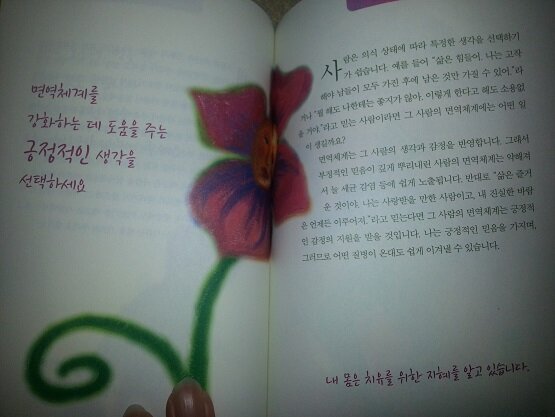 면역체계를
강화하는 데 도움을 주는
긍정적인 생각을
선택하세요
사람은 의식 상태에 따라 특정한 생각을 선택하기
가 쉽습니다. 예를 들어 "삶은 힘들어. 나는 고작
해야 남들이 모두 가진 후에 남은 것만 가질 수 있어."라
거나 "뭘 해도 나한테는 좋지가 않아. 이렇게 한다고 해도 소용없
을 거야."라고 믿는 사람이라면 그 사람의 면역체계에는 어떤 일
이 생길까요?
면역체계는 그 사람의 생각과 감정을 반영합니다. 그래서
부정적인 믿음이 깊게 뿌리내린 사람의 면역체계는 약해져
서 늘 세균 감염 등에 쉽게 노출됩니다. 반대로 "삶은 즐거
운 것이야. 나는 사랑받을 만한 사람이고, 내 진실한 바람
은 언제든 이루어져."라고 믿는다면 그 사람의 면역체계는 긍정적
인 감정의 지원을 받을 것입니다. 나는 긍정적인 믿음을 가지며,
그러므로 어떤 질병이 온대도 쉽게 이겨낼 수 있습니다.
내 몸은 치유를 위한 지혜를 알고 있습니다.